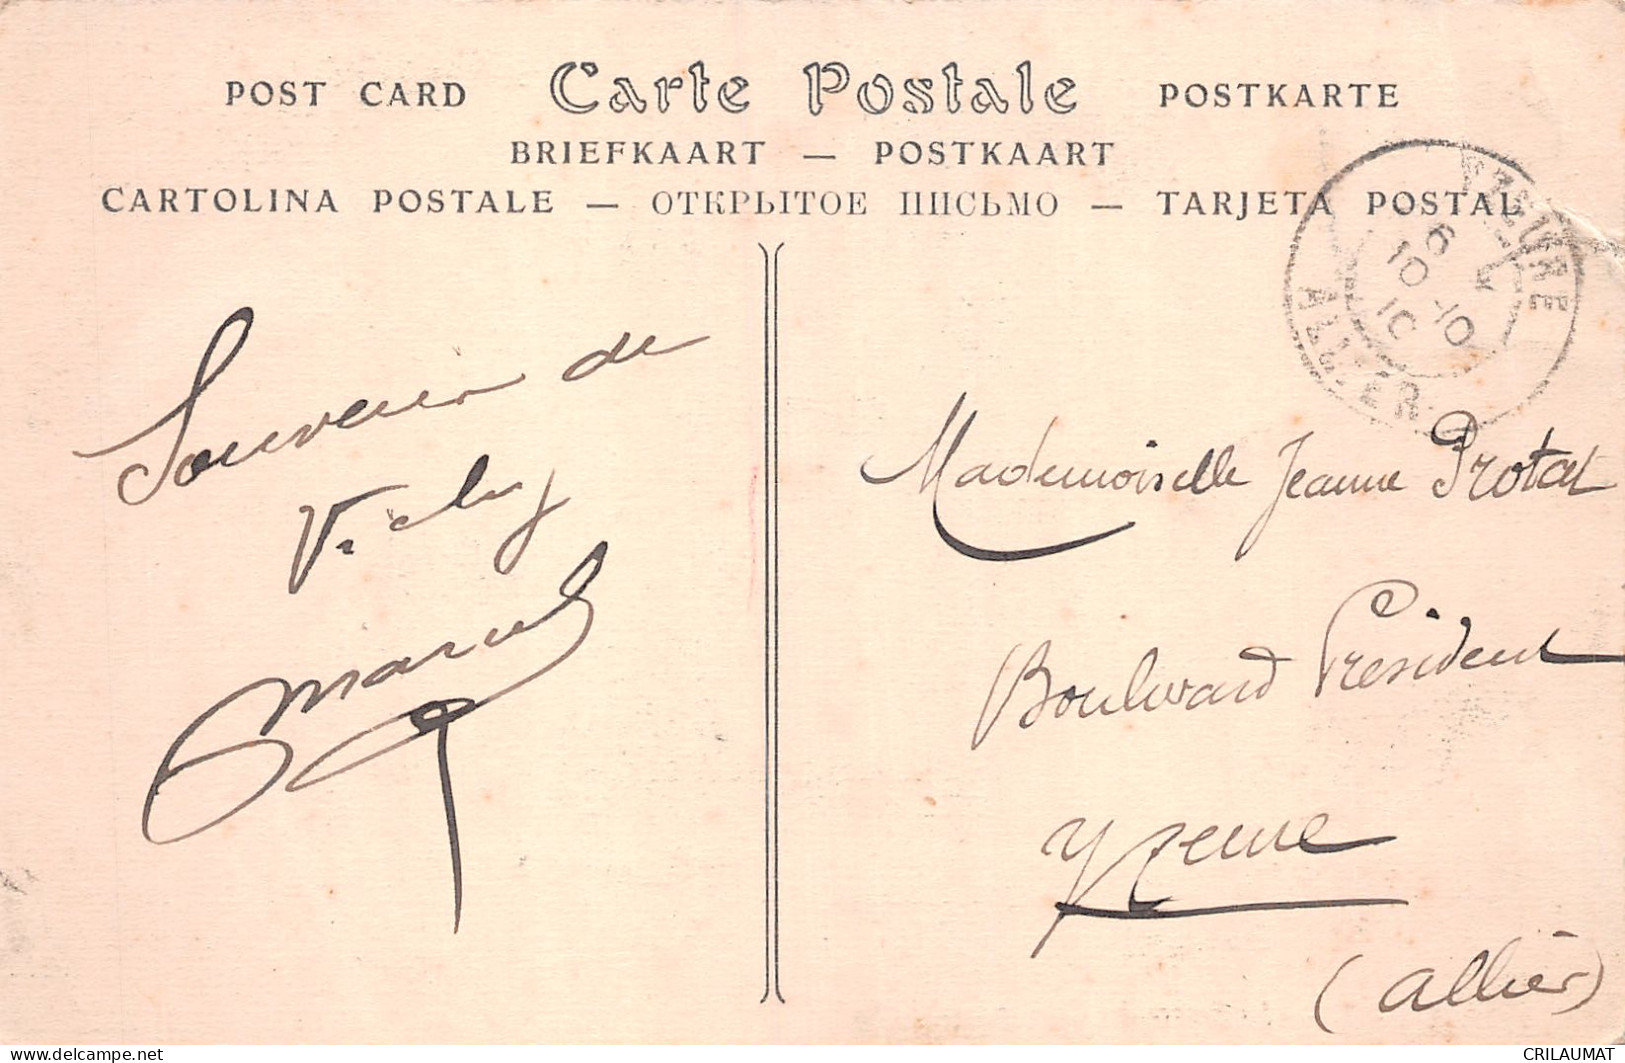 POST CARD Carte Postale POSTKARTE
BRIEFKAART — POSTKAART
CARTOLINA POSTALE — ОТКРЫТОЕ ПИСЬМО — TARJETA POSTAL
YZEURE
6
10 -10
10
ALLIER
Souvenir de
Vichy
Marcel
Mademoiselle Jeanne Protat
Boulevard Président
Yzeure
(Allier)
www.delcampe.net
CRILAUMAT